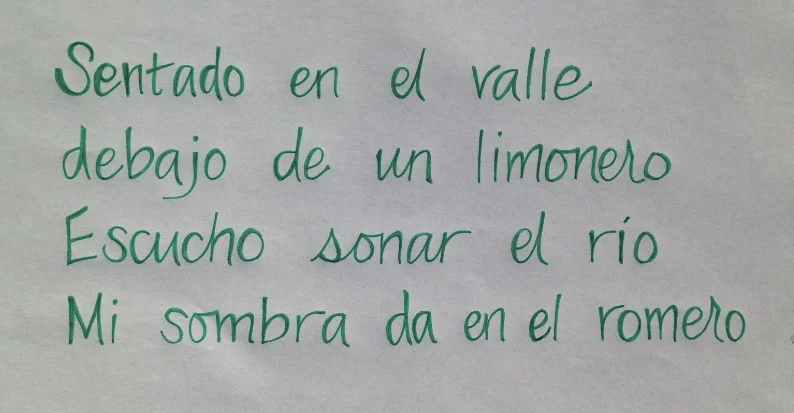 Sentado en el valle
debajo de un limonero
Escucho sonar el río
Mi sombra da en el romero